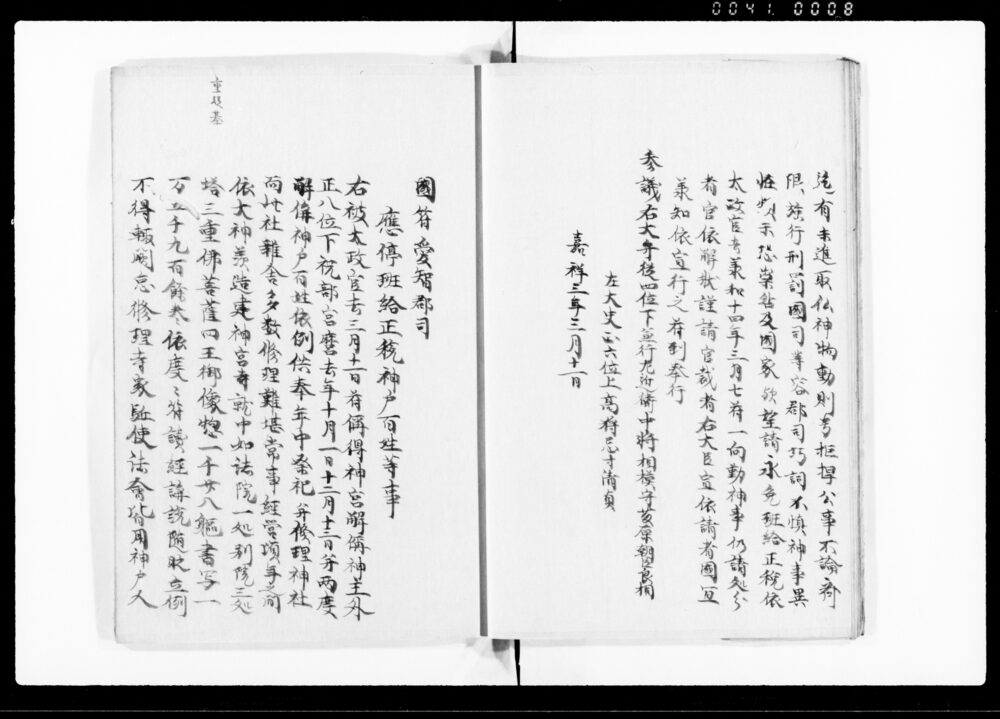 0041 0008
進有未進取仏神物動則考拒捍公事不論斎
限、旅行刑罰國司等容郡司巧詞不慎神事異
恠頻示恐祟紿及國家欲望請永免班給正税依
太政官去義和十四年三月七苻一向勤神事仍請処分
者官依解状謹請官裁者右大臣宣依請者國宜
義知依宣行之苻到奉行
参議右大弁従四位下兼行左近衛中将相模守藤原朝臣良相
左大史正六位上高苻忌寸清貞
嘉祥三年三月十一日
國苻愛智郡司
應停班給正税神戸百姓等事
右被太政官去三月十一日苻偁得神宮解偁神主外
正八位下祝部宮麿去年十月一日十二月十三日并兩度
解偁神戸百姓依例供奉年中祭祀并修理神社
而此社雜舎多数修理難堪常事経営頃年之間
依大神羨造建神宮寺就中如法院一処別院三処
塔三重佛菩薩四王梆像惣一千廿八軀書写一
万五千九百餘巻依度〻苻讀経講説随時立例
不得輙闕怠修理寺家駈使法會皆用神戸人
重垣基